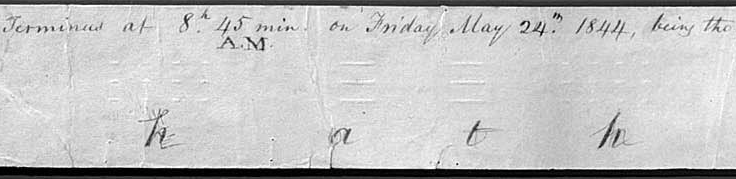 Terminus at 8.h 45 min. on Friday May 24th. 1844, being the
A.M.
h a t h